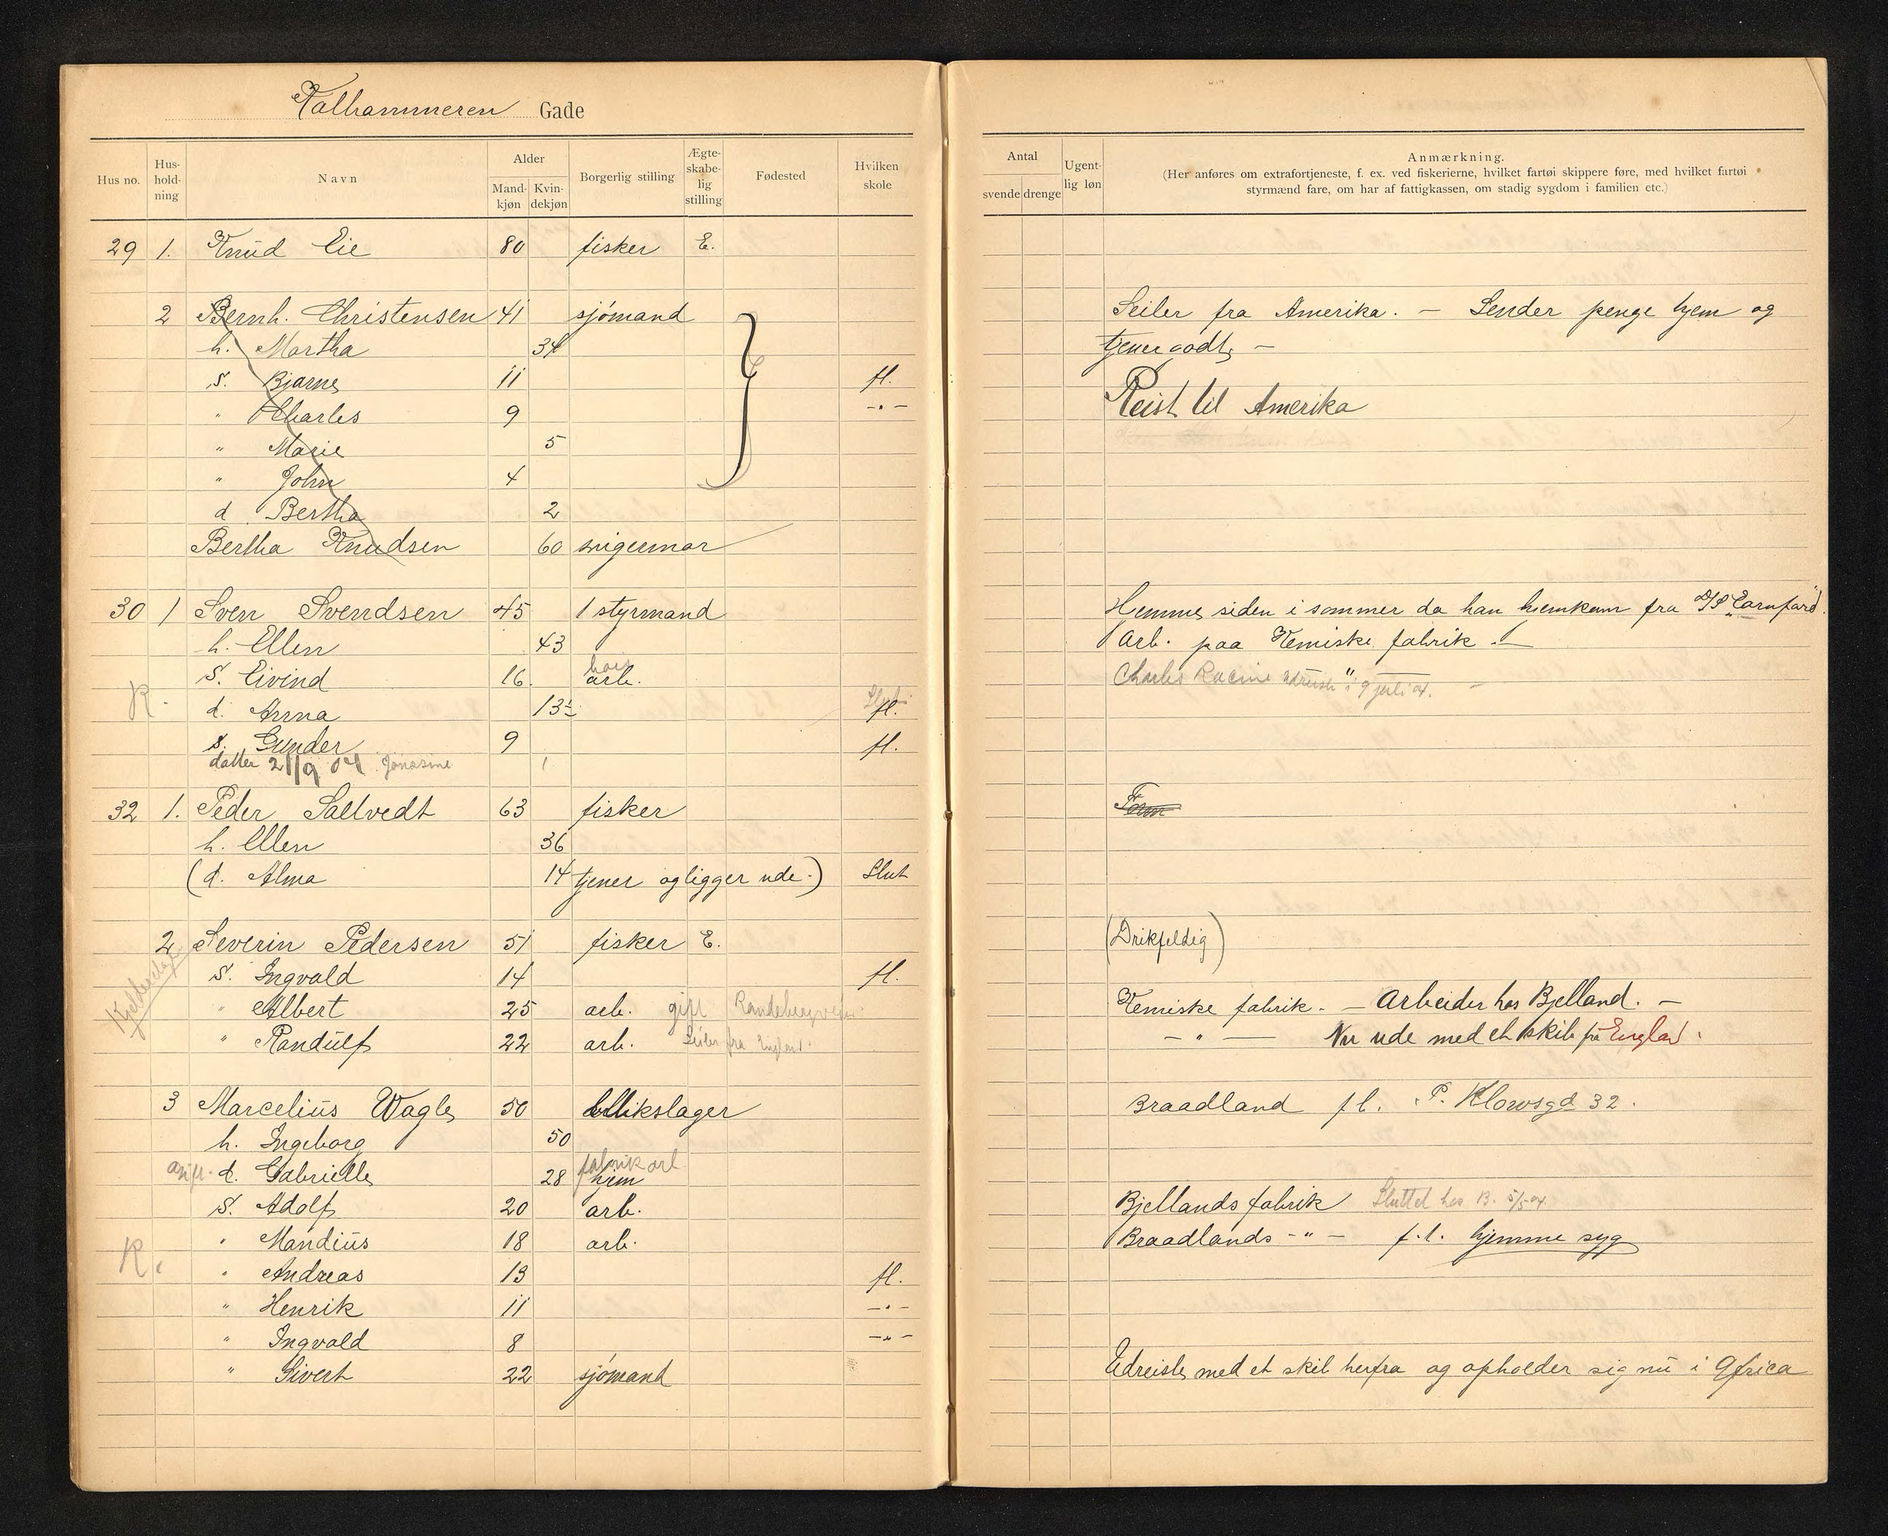 Kalhammeren Gade
Hus no. Hus-hold-ning Navn Alder Mand-kjøn Kvin-dekjøn Borgerlig stilling Ægte-skabe-lig stilling Fødested Hvilken skole
Antal svende drenge Ugent-lig løn Anmærkning.
(Her anføres om extrafortjeneste, f. ex. ved fiskerierne, hvilket fartøi skippere føre, med hvilket fartøi
styrmænd fare, om har af fattigkassen, om stadig sygdom i familien etc.)
29 1. Knud Eie 80 fisker E.
2 Bernh. Christensen 41 sjömand Seiler fra Amerika. — Sender penge hjem og
h. Martha 34 tjener godt —
S. Bjarne 11 fl.
" Charles 9 -"- Reist til Amerika
" Marie 5
" John 4
d Bertha 2
Bertha Knudsen 60 svigermor
30 1 Sven Svendsen 45 1 styrmand Hjemme siden i sommer da han hjemkom fra D/S
h. Ellen 43 Arb. paa Kemiske fabrik
S. Eivind 16. arb. Charles Racine udreiste 9 juli 04.
K. d. Anna 13 Slut fl.
s. Gunder 9 fl.
datter 21/9 04 Jonasine 1
32 1. Peder Saltvedt 63 fisker
h. Ellen 36
(d. Alma 14 tjener og ligger ude.) Slut
2 Severin Pedersen 51 fisker E. (Drikfeldig)
S. Ingvald 14 fl.
" Albert 25 arb. gift Randebergveien Kemiske fabrik. — Arbeider hos Bjelland. —
" Randulf 22 arb. Seiler fra England. — " — Nu ude med et skib fra England.
3 Marcelius Wagle 50 blikslager Braadland f.l. P. Klowsgd 32.
h. Ingeborg 50
ogift. d. Gabrielle 28 fabrikarb hjem
S. Adolf 20 arb. Bjellands fabrik Sluttet hos B. 5/5 04.
" Mandius 18 arb. Braadlands - " - f.l. hjemme syg
K. " Andreas 13 fl.
" Henrik 11 -"-
" Ingvald 8 -"-
" Sivert 22 sjömand Udreiste med et skib herfra og opholder sig nu i Africa